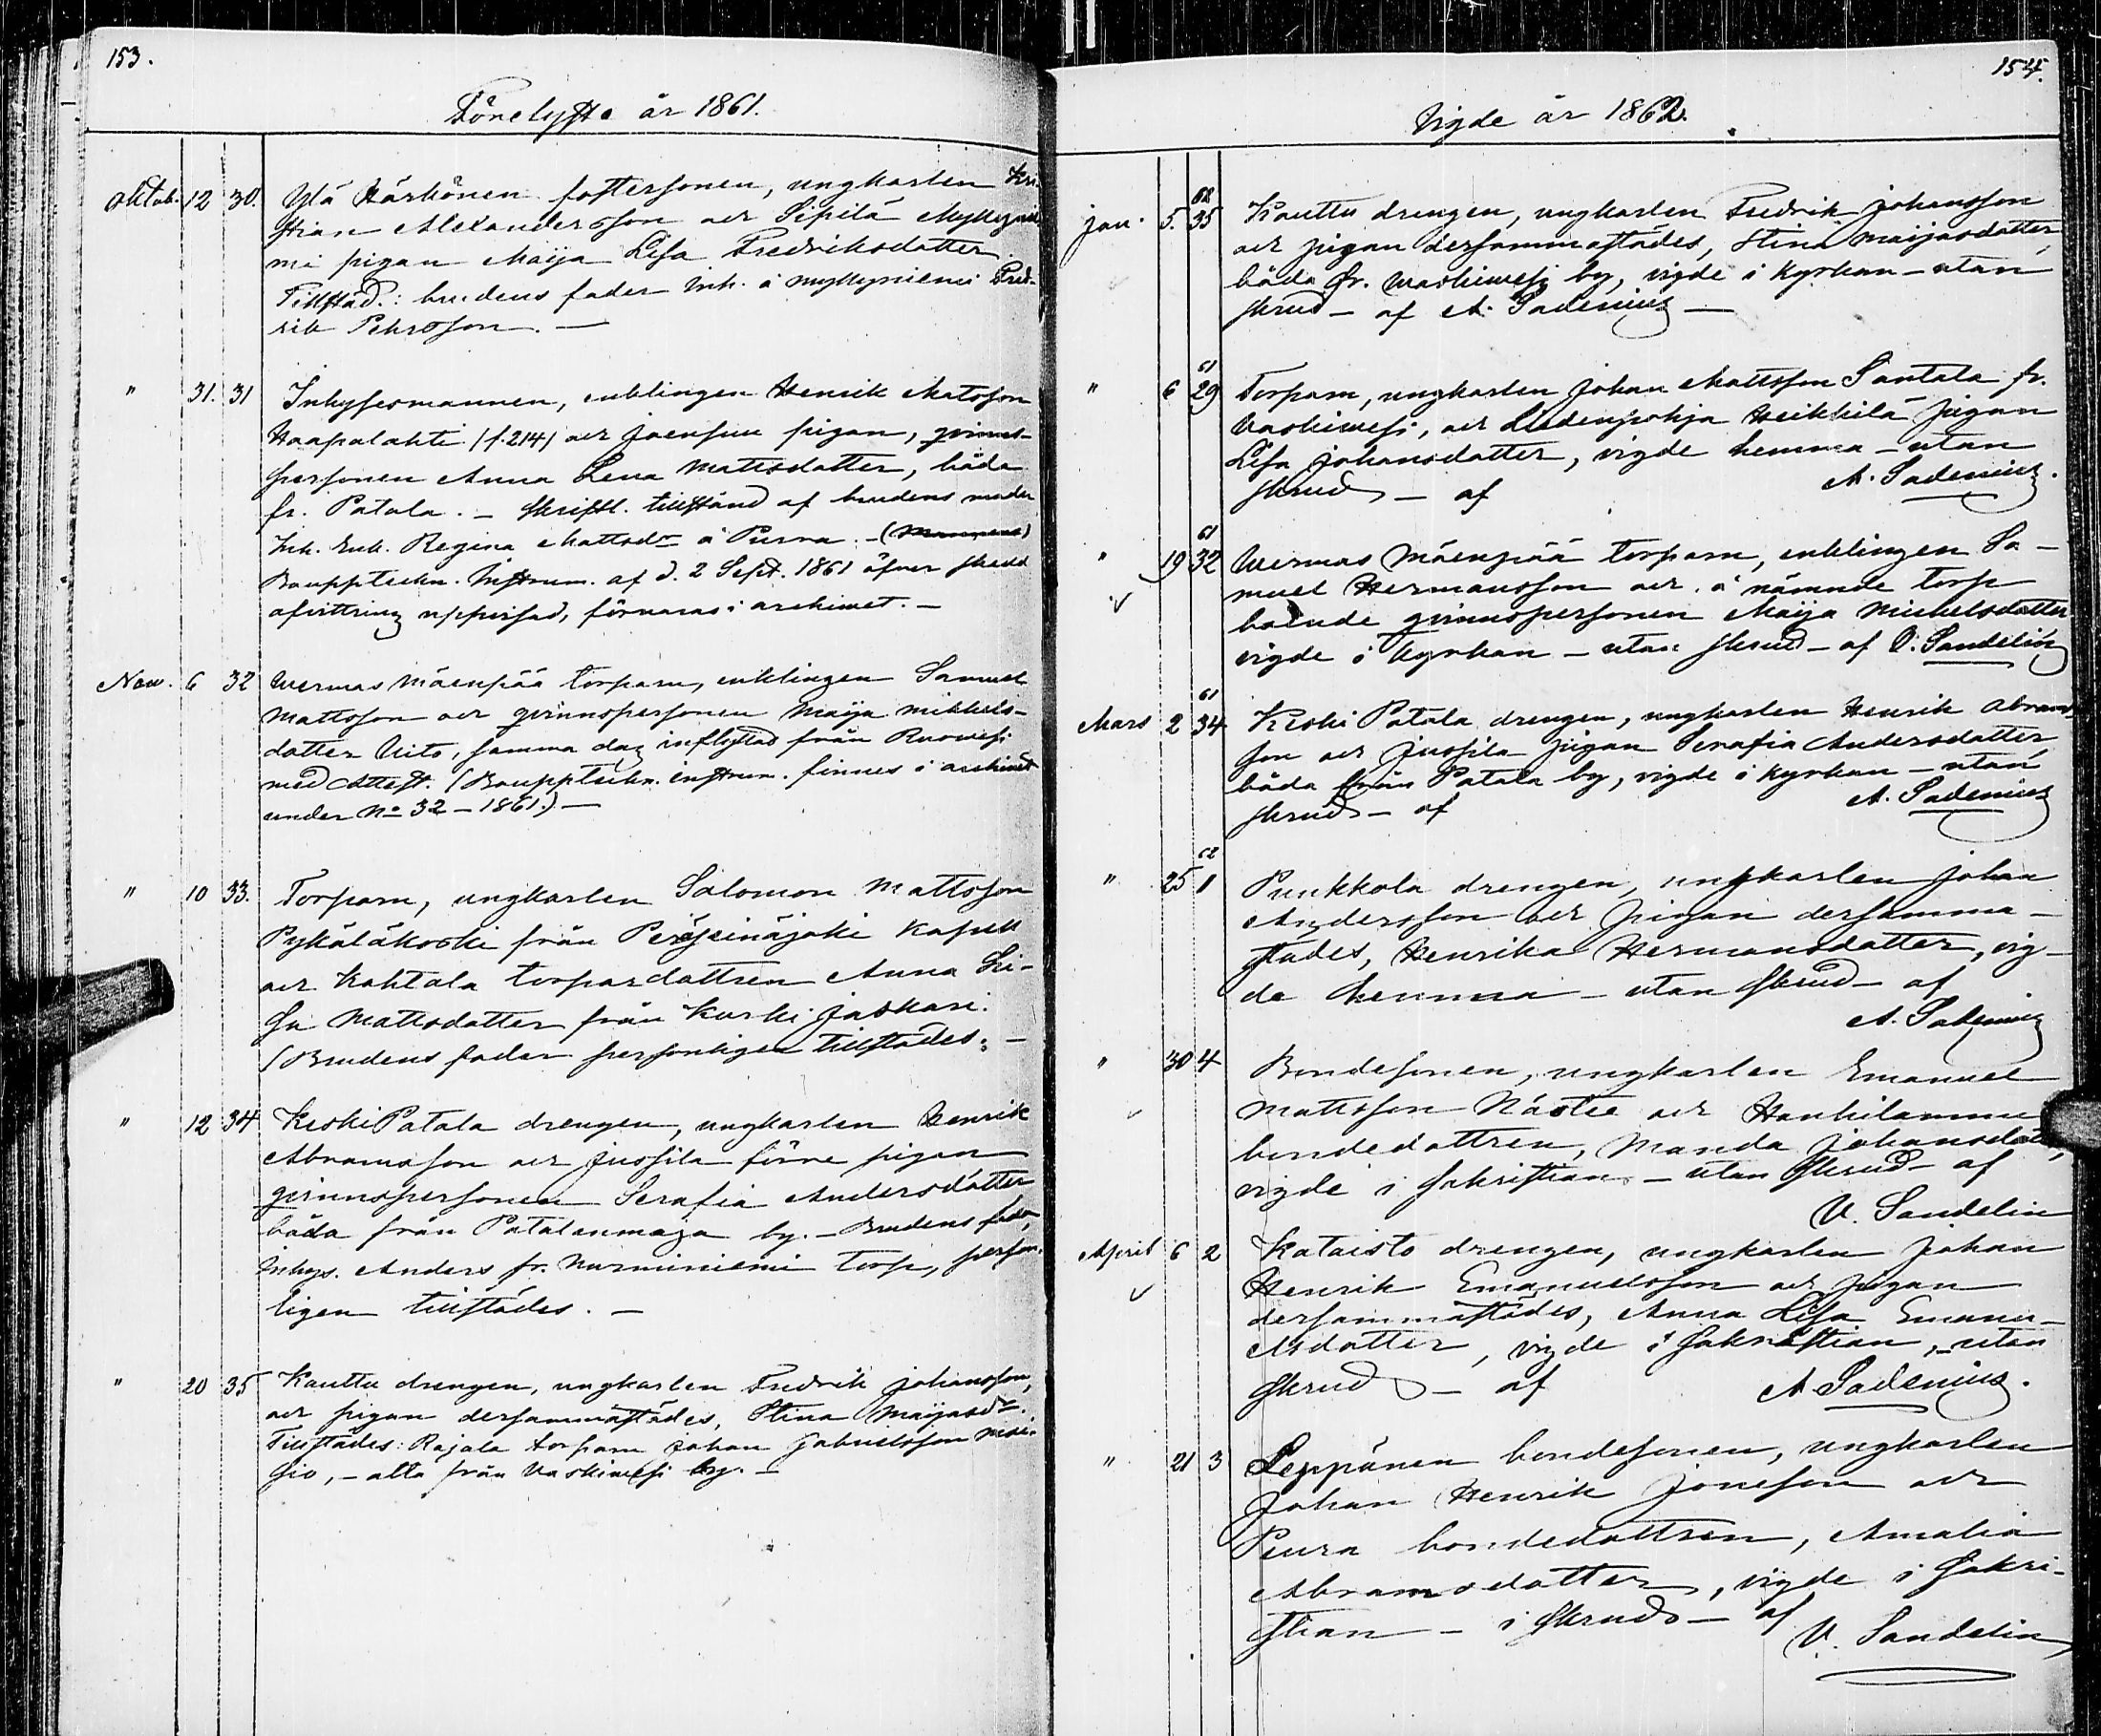 153.
Förelyste år 1861.
Oktob. 12 30. Ylä Härkönen fostersonen, ungkarlen Kri-
stian Alexandersson och Sipilä Myllynie-
mi pigan Maija Lisa Fredriksdotter.
Tillstäd.: brudens fader inh. å Myllyniemi Fred-
rik Pehrsson. —
" 31. 31 Inhysesmannen, enklingen Henrik Matsson
Haapalahti (f. 214) och Joensuu pigan, qvinns-
personen Anna Lena Mattsdotter, båda
fr. Patala. – Skriftl. tillstånd af brudens moder
Inh. Enk. Regina Mattsdr å Purra. –
Bouppteckn. Instrum. af d. 2 Sept. 1861 öfver skedd
afvittring uppvisad, förvaras i archivet. –
Nov. 6 32 Wermas Mäenpää torparn, enklingen Samuel
Mattsson och qvinnspersonen Maija Mikkels-
dotter Uito, samma dag inflyttad från Ruovesi
med Attest. (Bouppteckn. instrum. finnes i archivet
under No 32 – 1861.) —
" 10 33. Torparn, ungkarlen Salomon Mattsson
Pykäläkoski från Peräseinäjoki Kapell
och Kohtala torpardottren Anna Li-
sa Mattsdotter från Kurki Jaskari.
(Brudens fader personligen tillstädes. –
" 12 34 Keski Patala drengen, ungkarlen Henrik
Abramsson och Jussila förre pigan
qvinnspersonen Serafia Andersdotter
båda från Patalanmaja by. – Brudens fader,
Inhys. Anders fr. Nurminiemi torp, person-
ligen tillstädes. –
" 20 35 Kauttu drengen, ungkarlen Fredrik Johansson,
och pigan dersammastädes, Stina Maijasdr.
Tillstädes: Rajala torparn Johan Gabrielsson
– alla från Vaskivesi by. –
154.
Vigde år 1862.
Jan. 5. 62 35 Kauttu drengen, ungkarlen Fredrik Johansson
och pigan dersammastädes, Stina Maijasdotter,
båda fr. Waskivesi by, vigde i Kyrkan – utan
skrud – af A. Sadenius —
" 6 61 29 Torparn, ungkarlen Johan Mattsson Santala fr.
Vaskivesi, och Liedenpohja Heikkilä pigan
Lisa Johansdotter, vigde hemma – utan
skrud – af A. Sadenius.
" 19 61 32 Wermas Mäenpää torparn, enklingen Sa-
muel Hermansson och å nämnde torp
boende qvinnspersonen Maija Michelsdotter
vigde i Kyrkan – utan skrud – af V. Sandelin
Mars 2 61 34 Keski Patala drengen, ungkarlen Henrik Abrams-
son och Jussila pigan Serafia Andersdotter
båda från Patala by, vigde i Kyrkan – utan
skrud – af A. Sadenius
" 25 62 1 Punkkola drengen, ungkarlen Johan
Andersson och pigan dersamma-
städes, Henrika Hermansdotter, vig-
de hemma – utan skrud – af
A. Sadenius
" 30 4 Bondesonen, ungkarlen Emanuel
Mattsson Näsie och Hankilammi
bondedottren, Manda Johansdott,
vigde i Sakristian – utan skrud – af
V. Sandelin
April 6 2 Kataisto drengen, ungkarlen Johan
Henrik Emanuelsson och pigan
dersammastädes, Anna Lisa Emanu-
elsdotter, vigde i Sakristian, – utan
skrud – af A. Sadenius.
" 21 3 Leppänen bondesonen, ungkarlen
Johan Henrik Joneson och
Peura bondedottren, Amalia
Abramsdotter, vigde i Sakri-
stian – i skrud – af
V. Sandelin